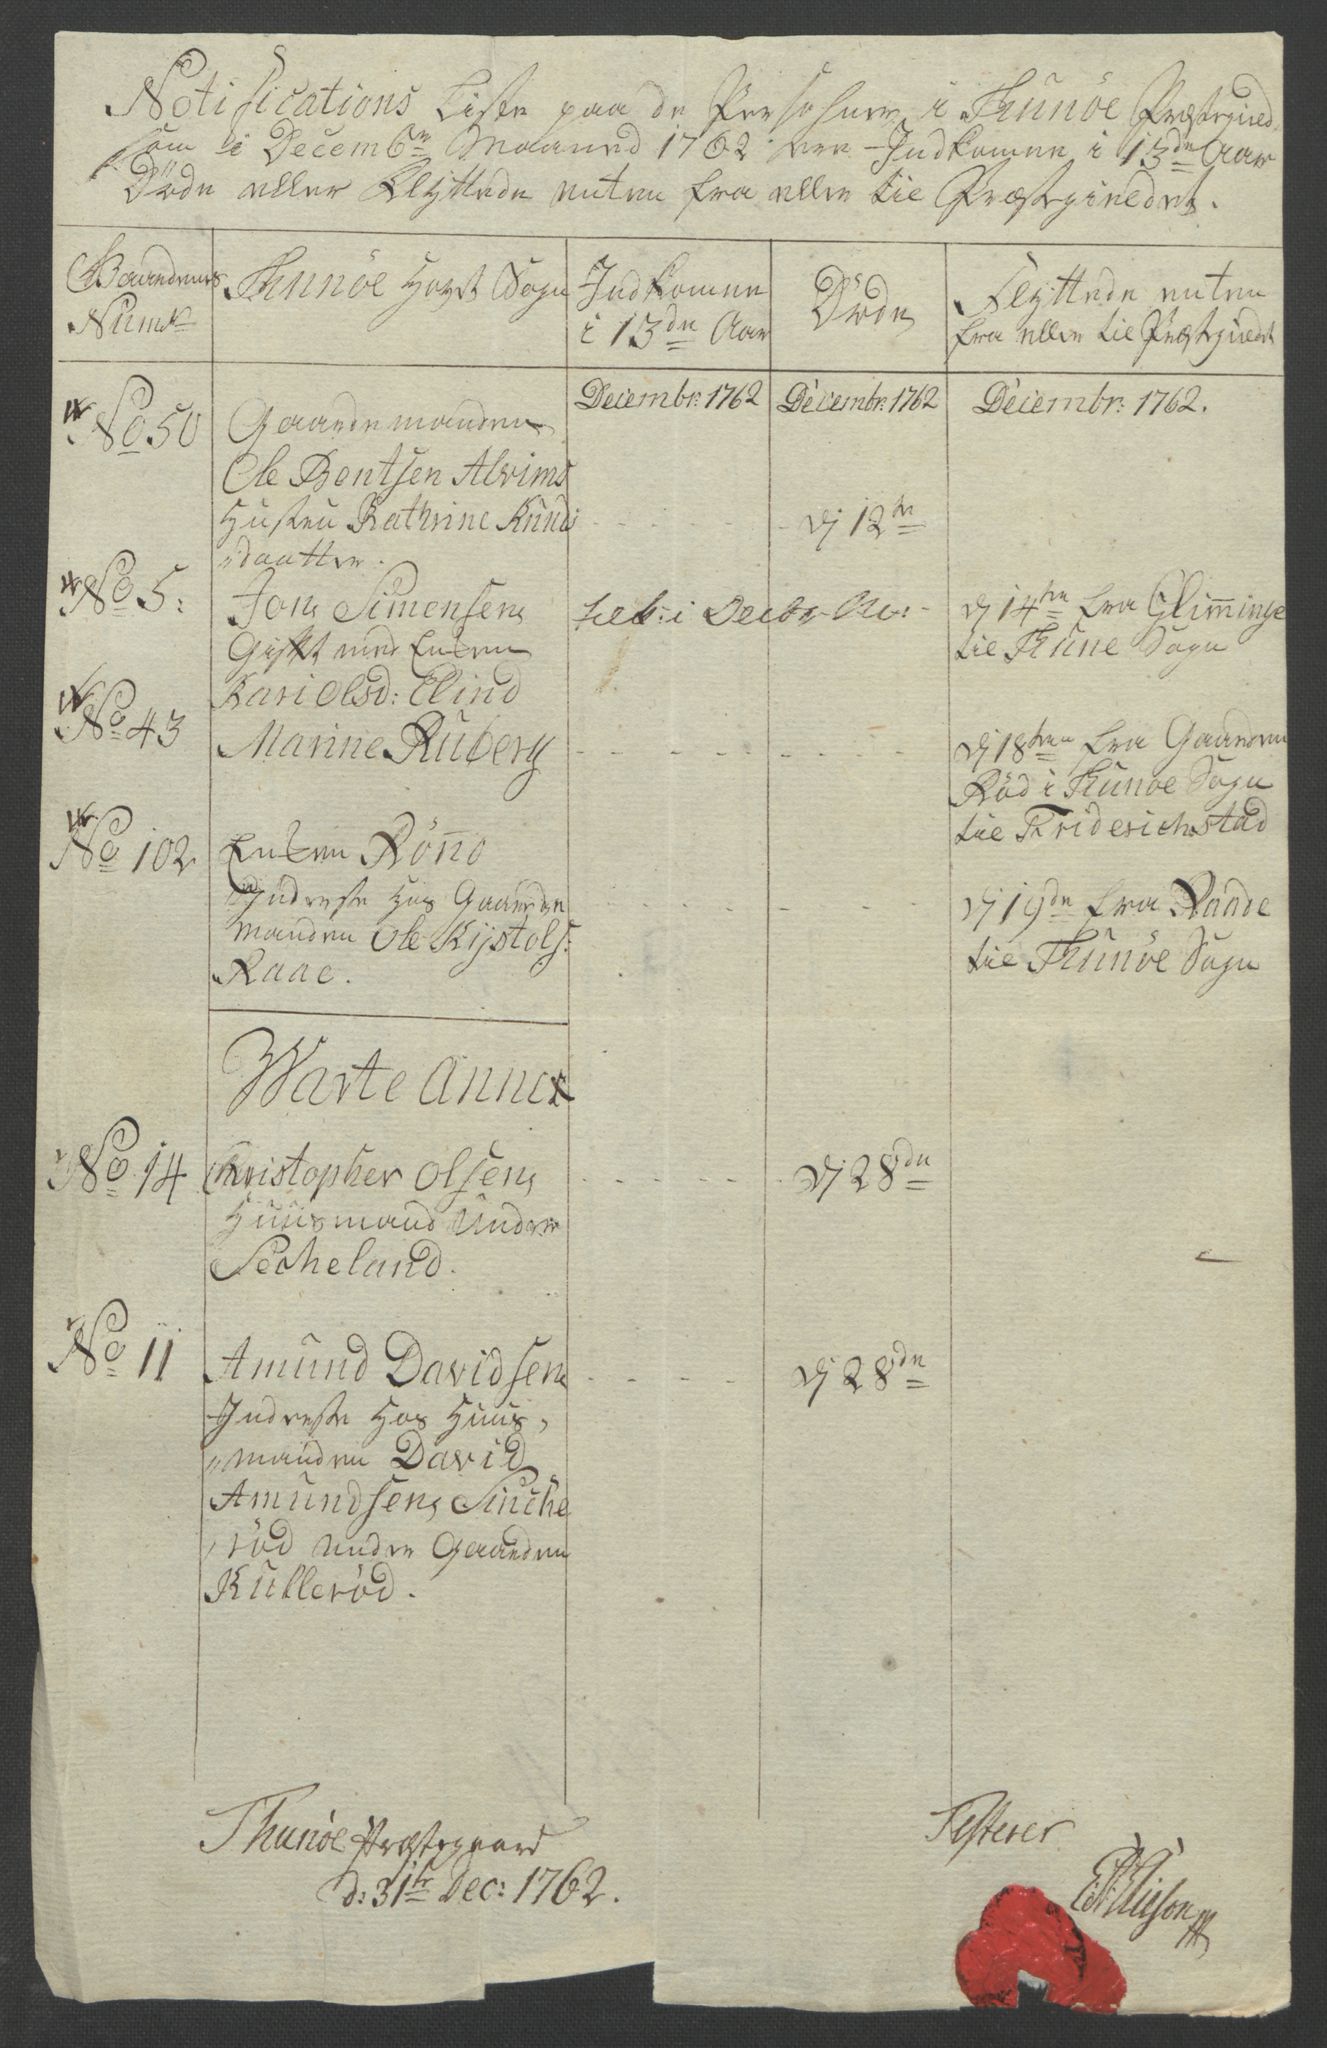 Notifications Liste paa de Persohner i Thunöe Præstegield
som i Decembr Maaned 1762 ere Indkomne i 13de Aar
Døde eller Flÿttede enten fra eller til Præstegieldet.
Gaardenes
Numr
Thunöe Hovet Sogn
Indkomne
i 13de Aar
Døde
Flÿttede enten
fra eller til Præstegieldet
Decembr: 1762
Decembr: 1762
Decembr: 1762.
No 50
Gaardemanden
Ole Bentsen Alvims
Hustru Kathrine Knuds
daatter.
Dj 12te
No 5:
Jon Simensen
Gift med Enken
Kari Olsd: Elind
i
Dj 14de fra Glimminge
til Thune Sogn
No 43
Marine Ruberg
Dj 18ten fra Gaarden
Röd i Thunöe Sogn
til Friderichstad
No 102
Enken Rönno
Inderste hos Gaarde
manden Ole Kijstols:
Raae.
Dj 19de fra Raade
til Thunöe Sogn
Warte Annex
No 14
Christopher Olsen
Huusmand under
Secheland.
Dj 28de
No 11
Amund Davidsen
Inderste hos Huus
manden David
Amundsen Sinche
röd under Gaarden
Kulleröd.
Dj 28de
Thunöe Præstegaard
d: 31te Dec: 1762.
Testerer